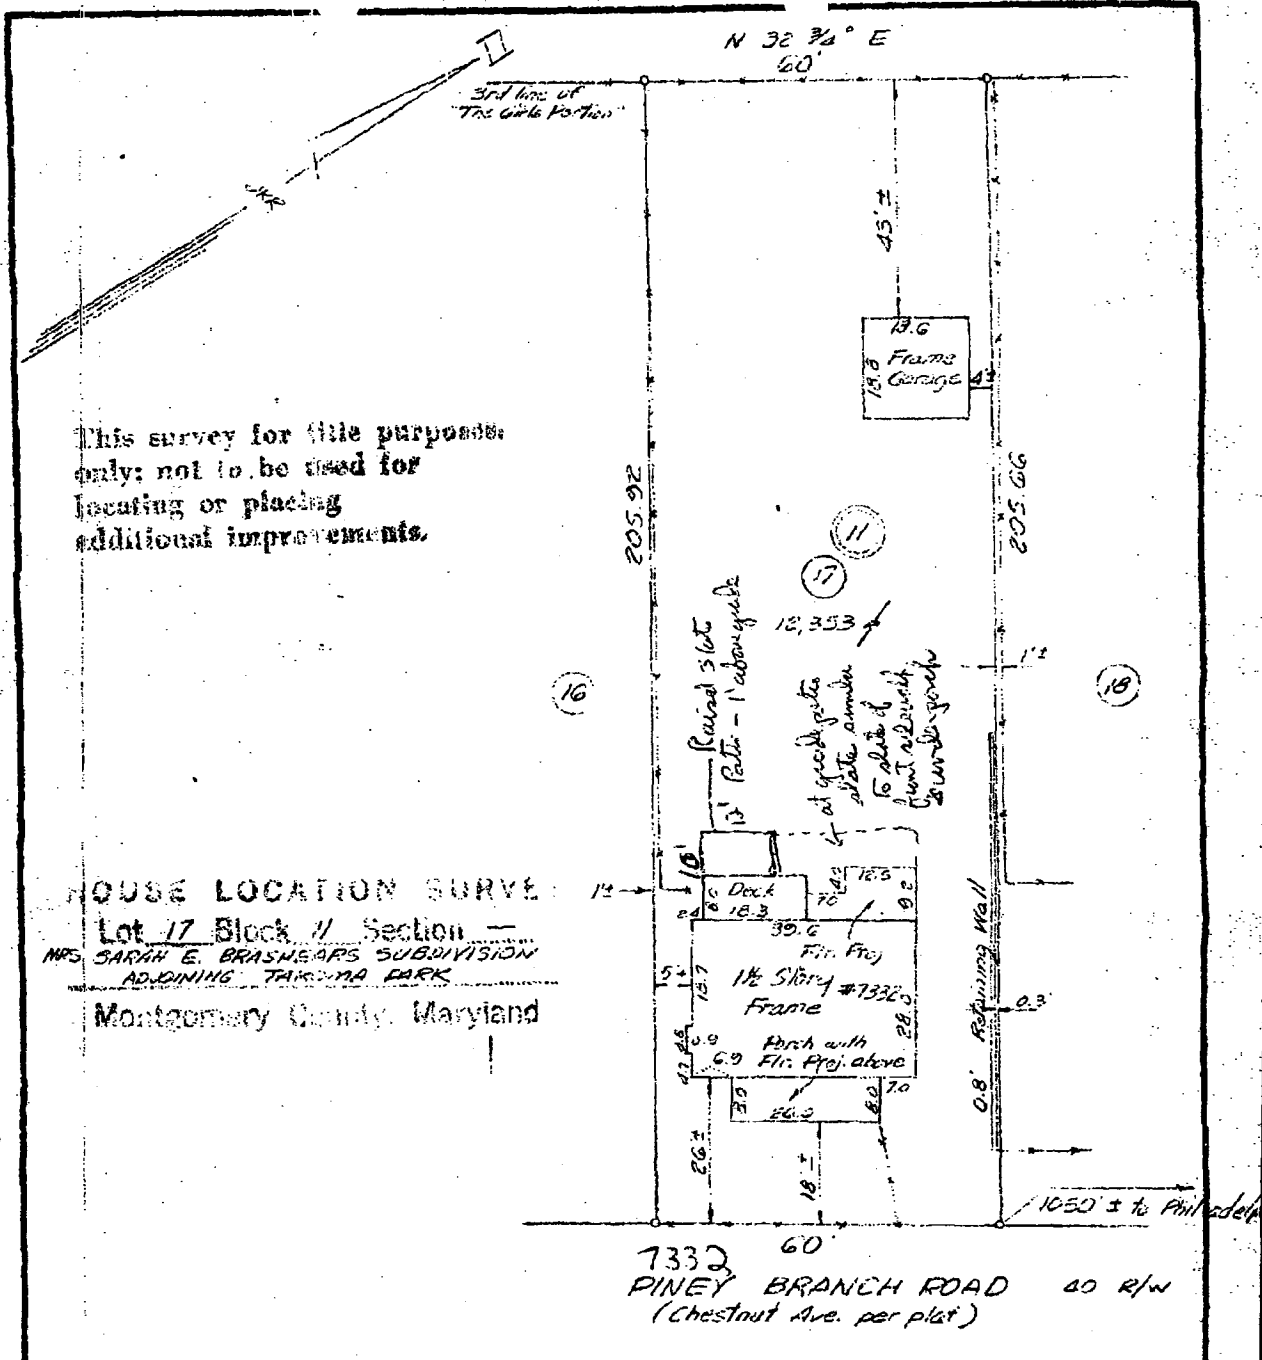 N 32 3/4° E
60'
3rd line of
"The Girls Portion"
43' ±
18.8
Frame
Garage
4'±
This survey for title purposes
only; not to be used for
locating or placing
additional improvements.
205.92
205.66
11
17
12,353
16
18
1'±
Raised slate
Patio - 1' above grade
at grade patio
slate similar
to slate of
front sidewalk
& under porch
12'
10'
HOUSE LOCATION SURVE
Lot 17 Block 11 Section —
MRS. SARAH E. BRASHEARS SUBDIVISION
ADJOINING TAKOMA PARK
Montgomery County, Maryland
1±
Deck
18.3
2.4
7.0
4.2
9.2
39.6
Flr. Proj
1½ Story #7332
Frame
28.0
5 ±
18.7
6.9
4.7
Porch with
Flr. Proj. above
8.0
7.0
26 ±
18' ±
0.8' Retaining Wall
0.3'
1050' ± to Philadelp
60'
7332
PINEY BRANCH ROAD 40 R/W
(Chestnut Ave. per plat)